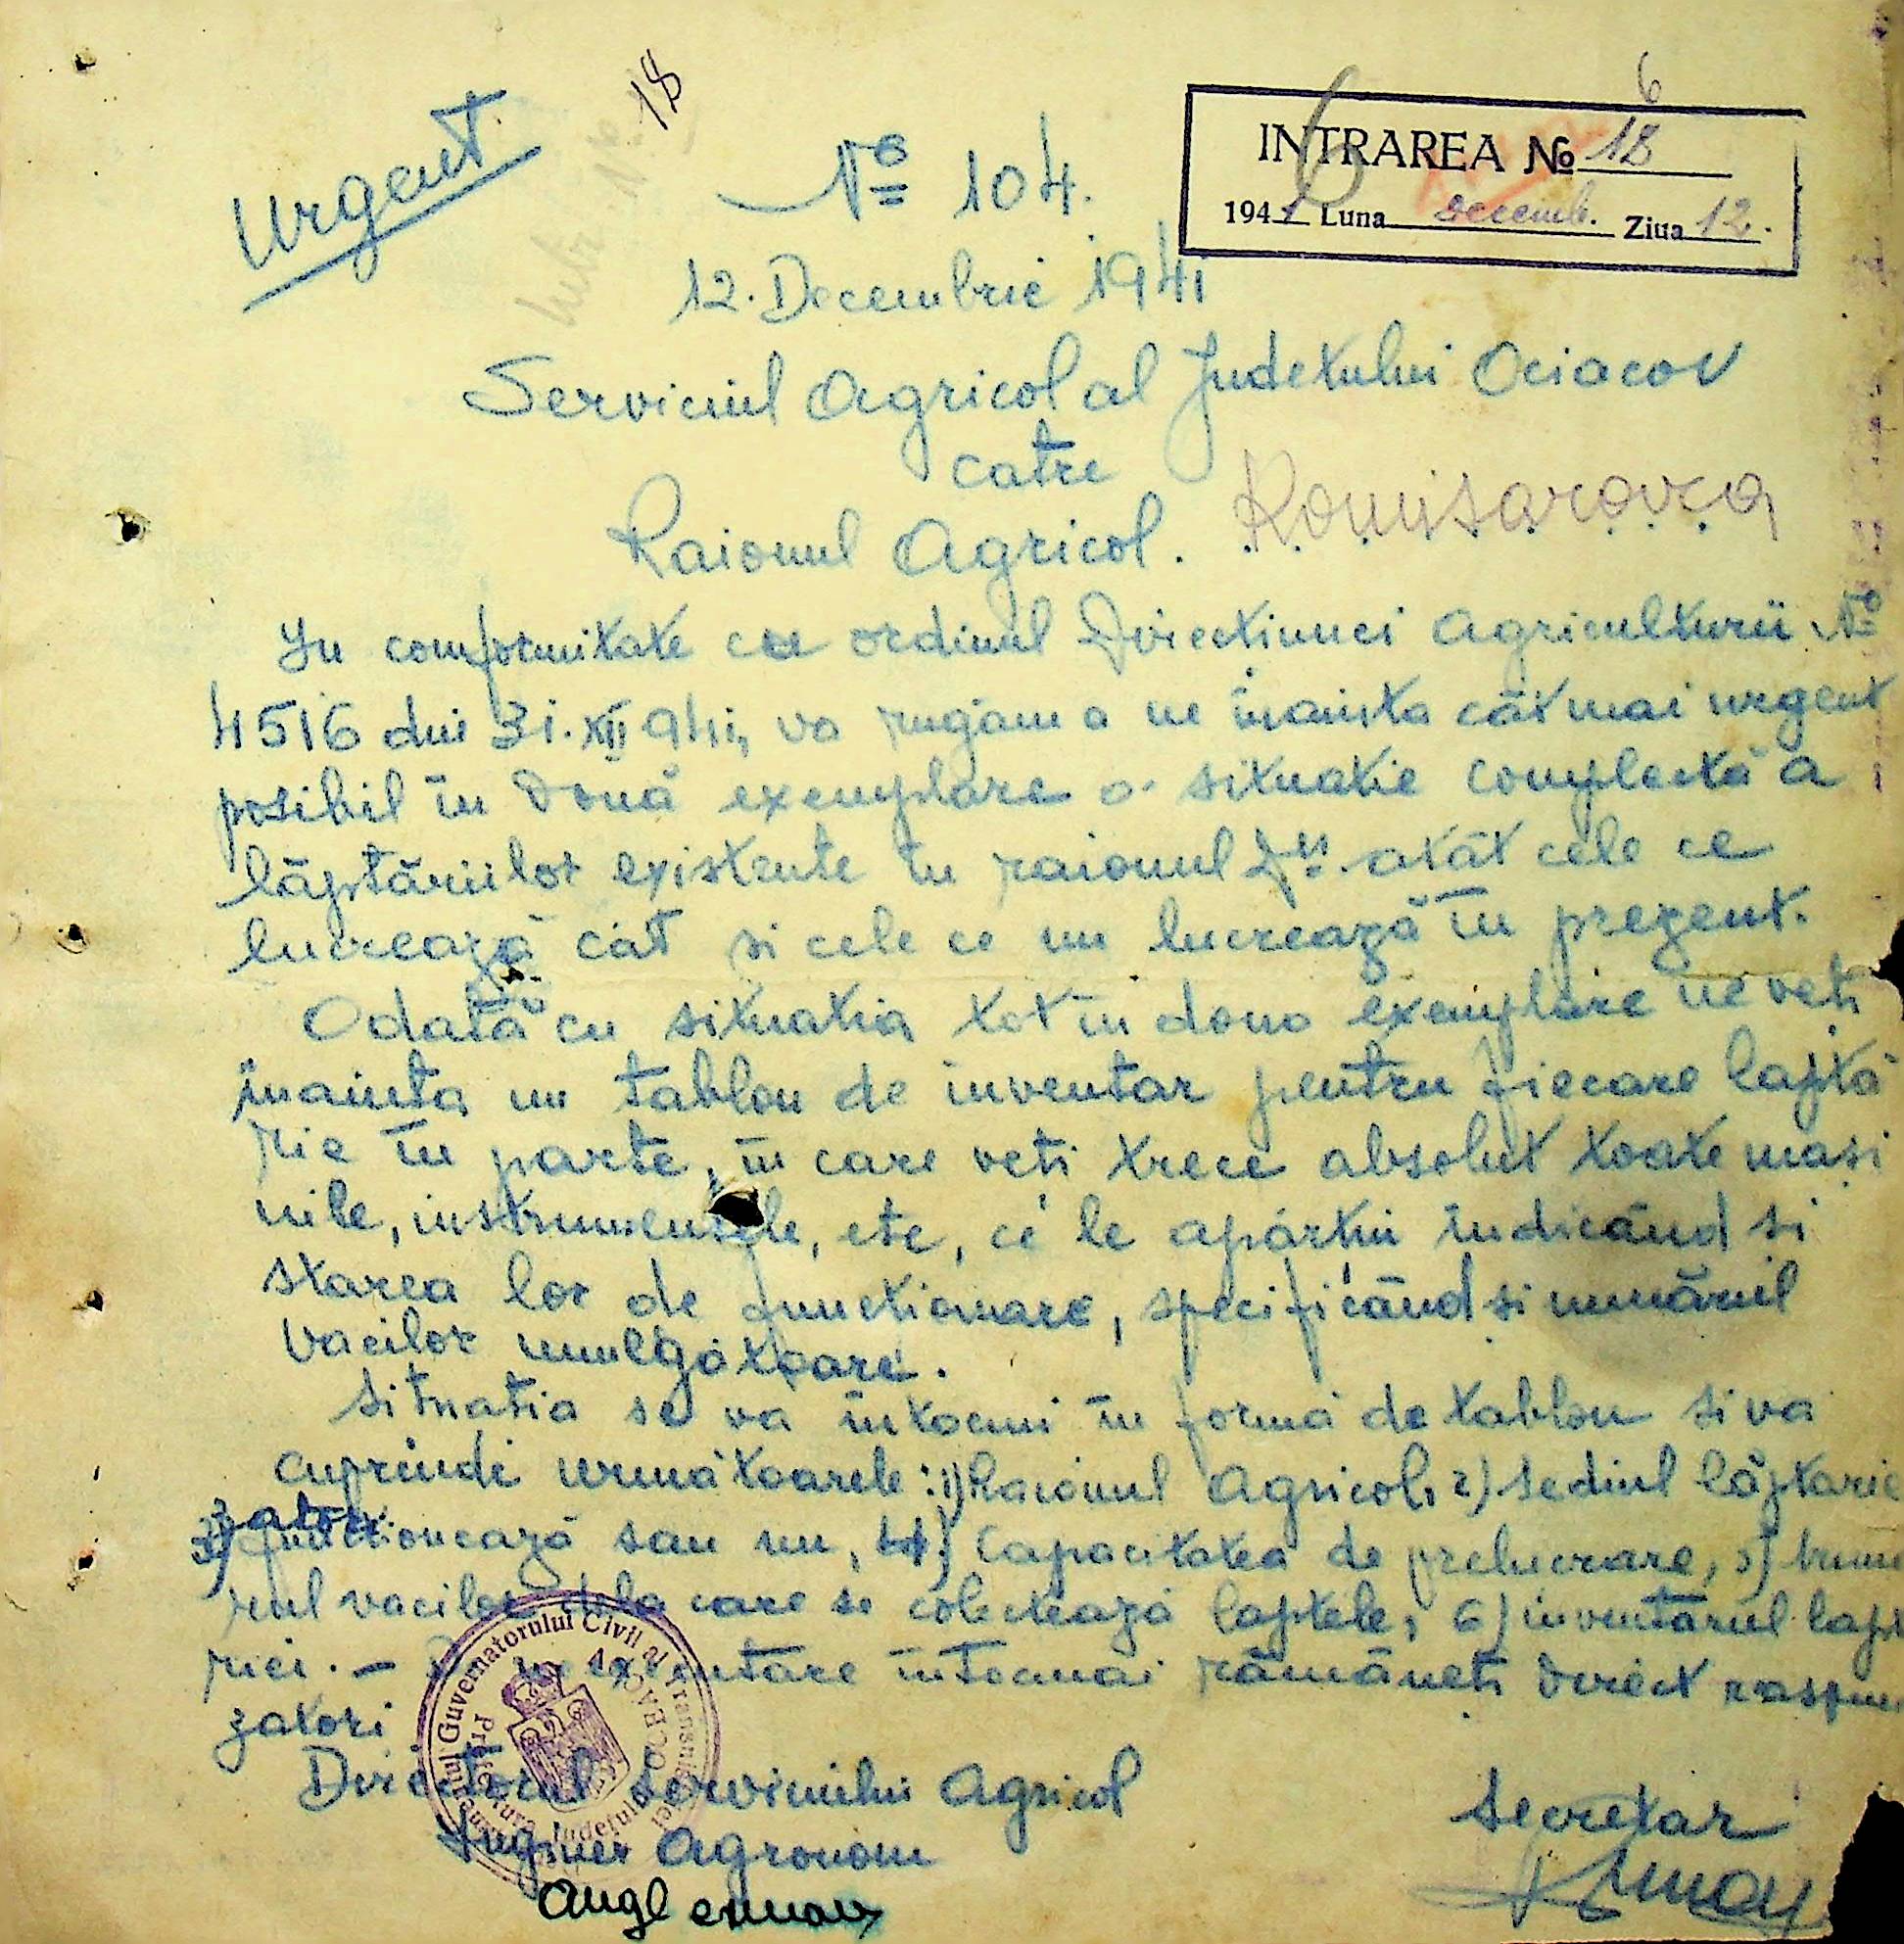 Urgent
18
No 104.
6
INTRAREA No 18
1941 Luna Decemb. Ziua 12.
12. Decembrie 1941
Serviciul Agricol al Judetului Ociacov
catre
Raionul Agricol. Komisarovca
In conformitate cu ordinul Directiunei Agriculturii No
4516 din 31.XII 941, va rugam a ne inainta cât mai urgent
posibil în două exemplare o situatie complectă a
lăptăriilor existente în raionul Dvs. atât cele ce
lucrează cât si cele ce nu lucrează în prezent.
Odată cu situatia tot în doua exemplare ne veti
înainta un tablou de inventar pentru fiecare laptă
rie în parte, în care veti trece absolut toate masi
nile, instrumentele, etc, ce le apartin indicând si
starea lor de functionare, specificând si numărul
vacilor mulgătoare.
Situatia se va întocmi în formă de tablou si va
cuprinde următoarele: 1) Raionul Agricol, 2) Sediul lăptarie
3) functionează sau nu, 4) Capacitatea de prelucrare, 5) numa
rul vacilor dela care se colectează laptele, 6) inventarul lapt
riei. — neexecutare întocmai rămâneti direct raspun
zatori
Directorul Serviciului Agricol
Inginer Agronom
Secretar
Guvernatorului Civil al Transnistriei
Prefectura Judeţului
OCEACOV